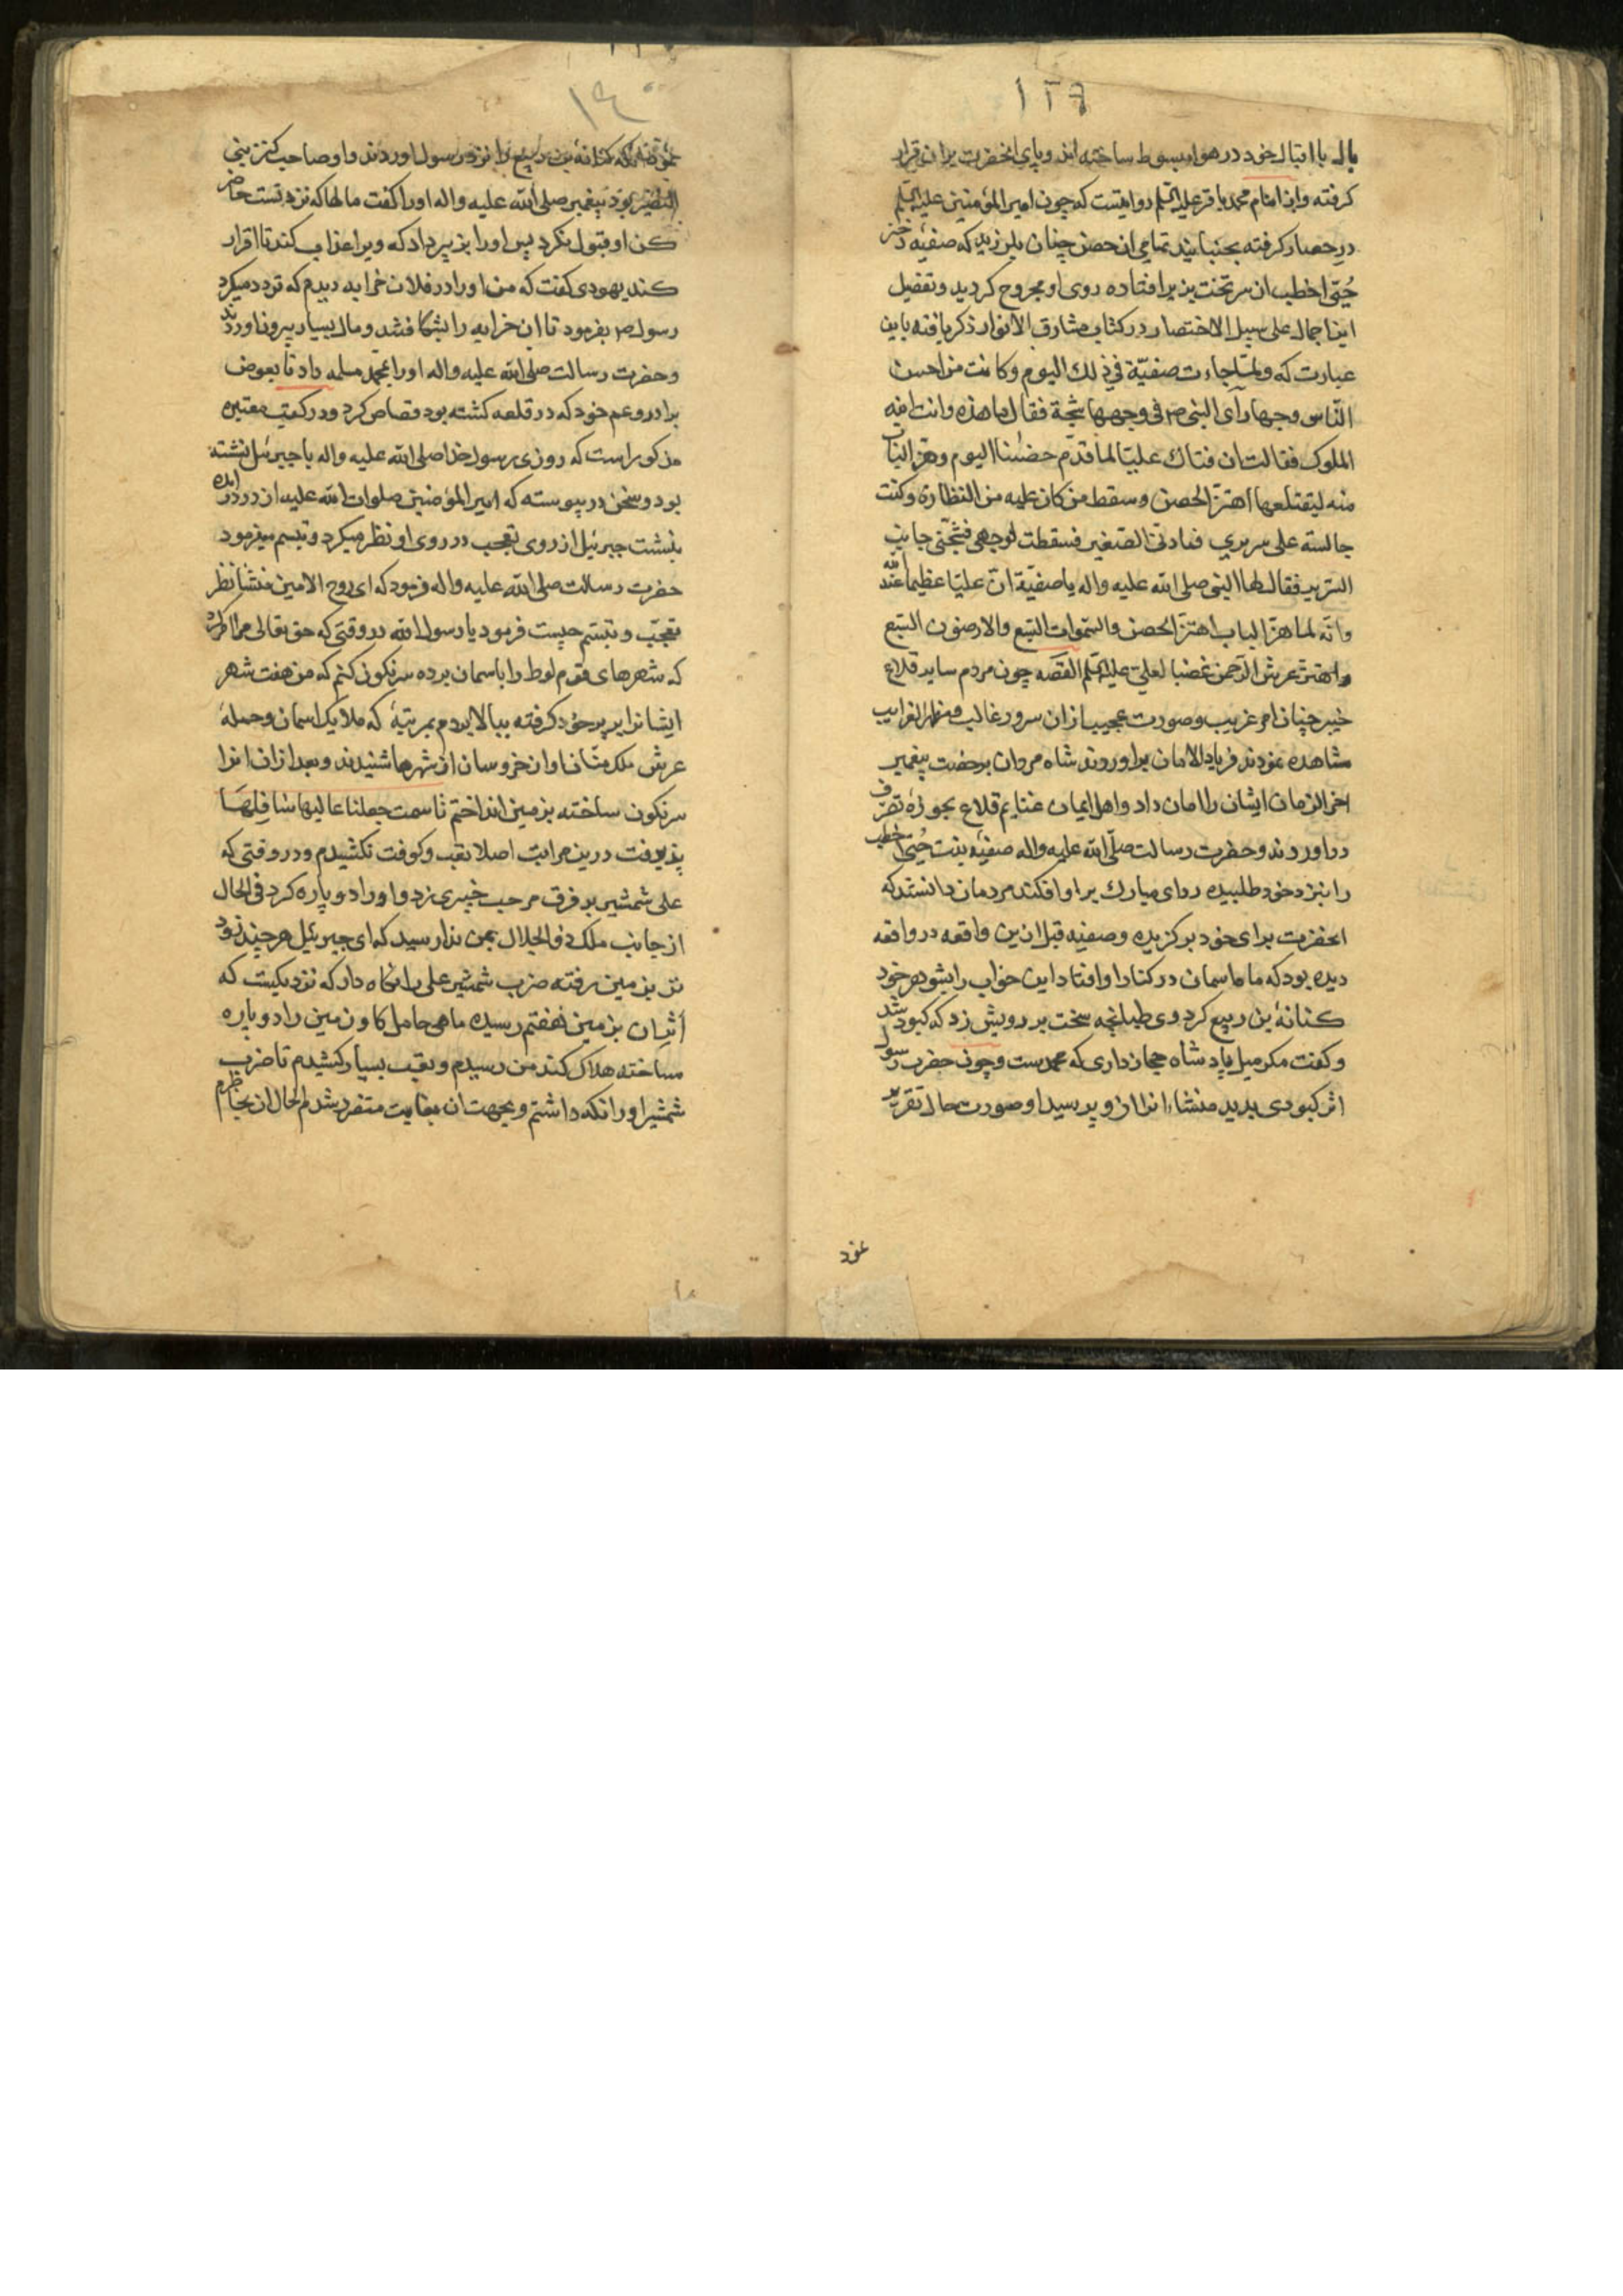 ۱۳۹
بال با اقبال خود در هوا مبسوط ساخته اند و پای انحضرت بران قرار
کرفته و از امام محمد باقر علیه السلم روایتست که چون امیر المؤمنین علیه السلم
در حصار کرفته بجنبانید تمامی ان حصن چنان بلرزید که صفیه دختر
حُیَی اخطب از سر تخت بزیر افتاده روی او مجروح کردید و تفصیل
این اجمال علی سبیل الاختصار در کتاب مشارق الانوار ذکر یافته باین
عبارت که ولمّا جاءت صفیّة فی ذلك الیوم و کانت من احسن
النّاس وجها رأی النبی ص فی وجهها شجّة فقال ما هذه وانت ابنه
الملوك فقالت ان علیّا لما قدّم حضننا الیوم وهزّ الباب
منه لیقتلعها اهتزّ الحصن و سقط من کان علیه من النظارة وکنت
جالسته علی سریری فمادنی الصغیر فسقطت لوجهی فشجّنی جانب
السّریر فقال لها النبی صلی الله علیه واله یا صفیّة انّ علیّا عظیما عند الله
وانّه لما هزّ الباب اهتزّ الحصن والسّموات السّبع والارضون السّبع
واهتزّ عرش الرّحمن غضبا لعلیّ علیه السّلم القصه چون مردم سایر قلاع
خیبر چنان امر غریب و صورت عجیب از ان سرور غالب و مظهر الغرایب
مشاهده نمودند فریاد الامان براوروند شاه مردان برخصت پیغمبر
اخر الزمان ایشان را امان داد و اهل ایمان غنایم قلاع بحوزهٔ تصرّف
دراوردند و حضرت رسالت صلّی الله علیه واله صفیّه بنت حُیَیّ اخطب
را بنزد خود طلبیده ردای مبارك بر او افکند مردمان دانستند که
انحضرت برای خود برکزیده و صفیه قبل ازین واقعه در واقعه
دیده بود که ماه اسمان در کنار او افتاد این خواب را بشوهر خود
کنانهٔ بن ربیع کرد وی طپانچه سخت بر رویش زد که کبود شد
و کفت مکر میل پادشاه حجاز داری که محمدست و چون حضرت رسول
اثر کبودی بدید منشاء انرا از و پرسید او صورت حال تقریر
نمود
۱۴۰
کنانهٔ بن ربیع را نزد رسول اوردند و او صاحب کنز بنی
النضیر بود پیغمبر صلی الله علیه واله اورا کفت مالها که نزد تست حاضر
کن او قبول نکرد پس اورا بزبیر داد که ویرا عذاب کند تا اقرار
کند یهودی کفت که من اورا در فلان خرابه دیدم که تردد میکرد
رسول ص بفرمود تا ان خرابه را بشکافتند و مال بسیار بیرون اوردند
و حضرت رسالت صلی الله علیه واله اورا بمحمد مسلمه داد تا بعوض
برادر و عم خود که در قلعه کشته بود قصاص کرد و در کتب معتبره
مذکور است که روزی رسول خدا صلی الله علیه واله با جبرئیل نشسته
بود و سخن در پیوسته که امیر المؤمنین صلوات الله علیه از در درامده
بنشست جبرئیل از روی تعجب در روی او نظر میکرد و تبسم میفرمود
حضرت رسالت صلی الله علیه واله فرمود که ای روح الامین منشا نظر
تعجّب و تبسّم چیست فرمود یا رسول الله در وقتی که حق تعالی مرا امر کرد
که شهرهای قوم لوط را باسمان برده سرنکون کنم که من هفت شهر
ایشانرا بر پر خود کرفته ببالا بردم بمرتبهٔ که ملایك اسمان و حملهٔ
عرش ملك منّان اواز خروسان از شهرها شنیدند و بعد از ان انرا
سرنکون ساخته بزمین انداختم تا سمت جعلنا عالیها سافلها
پذیرفت درین مراتب اصلا تعب و کوفت نکشیدم و در وقتی که
علی شمشیر بر فرق مرحب خیبری زد و اورا دو پاره کرد فی الحال
از جانب ملك ذو الجلال بمن ندا رسید که ای جبرئیل هرچند زود
تر بزمین رفته ضرب شمشیر علی را نکاه دار که نزدیکست که
اثر ان بزمین هفتم رسیده ماهی حامل کاو زمین را دو پاره
ساخته هلاك کند من رسیدم و تعب بسیار کشیدم تا ضرب
شمشیر اورا نکه داشتم و بجهت ان بغایت متفرد شدم الحال ان بخاطرم